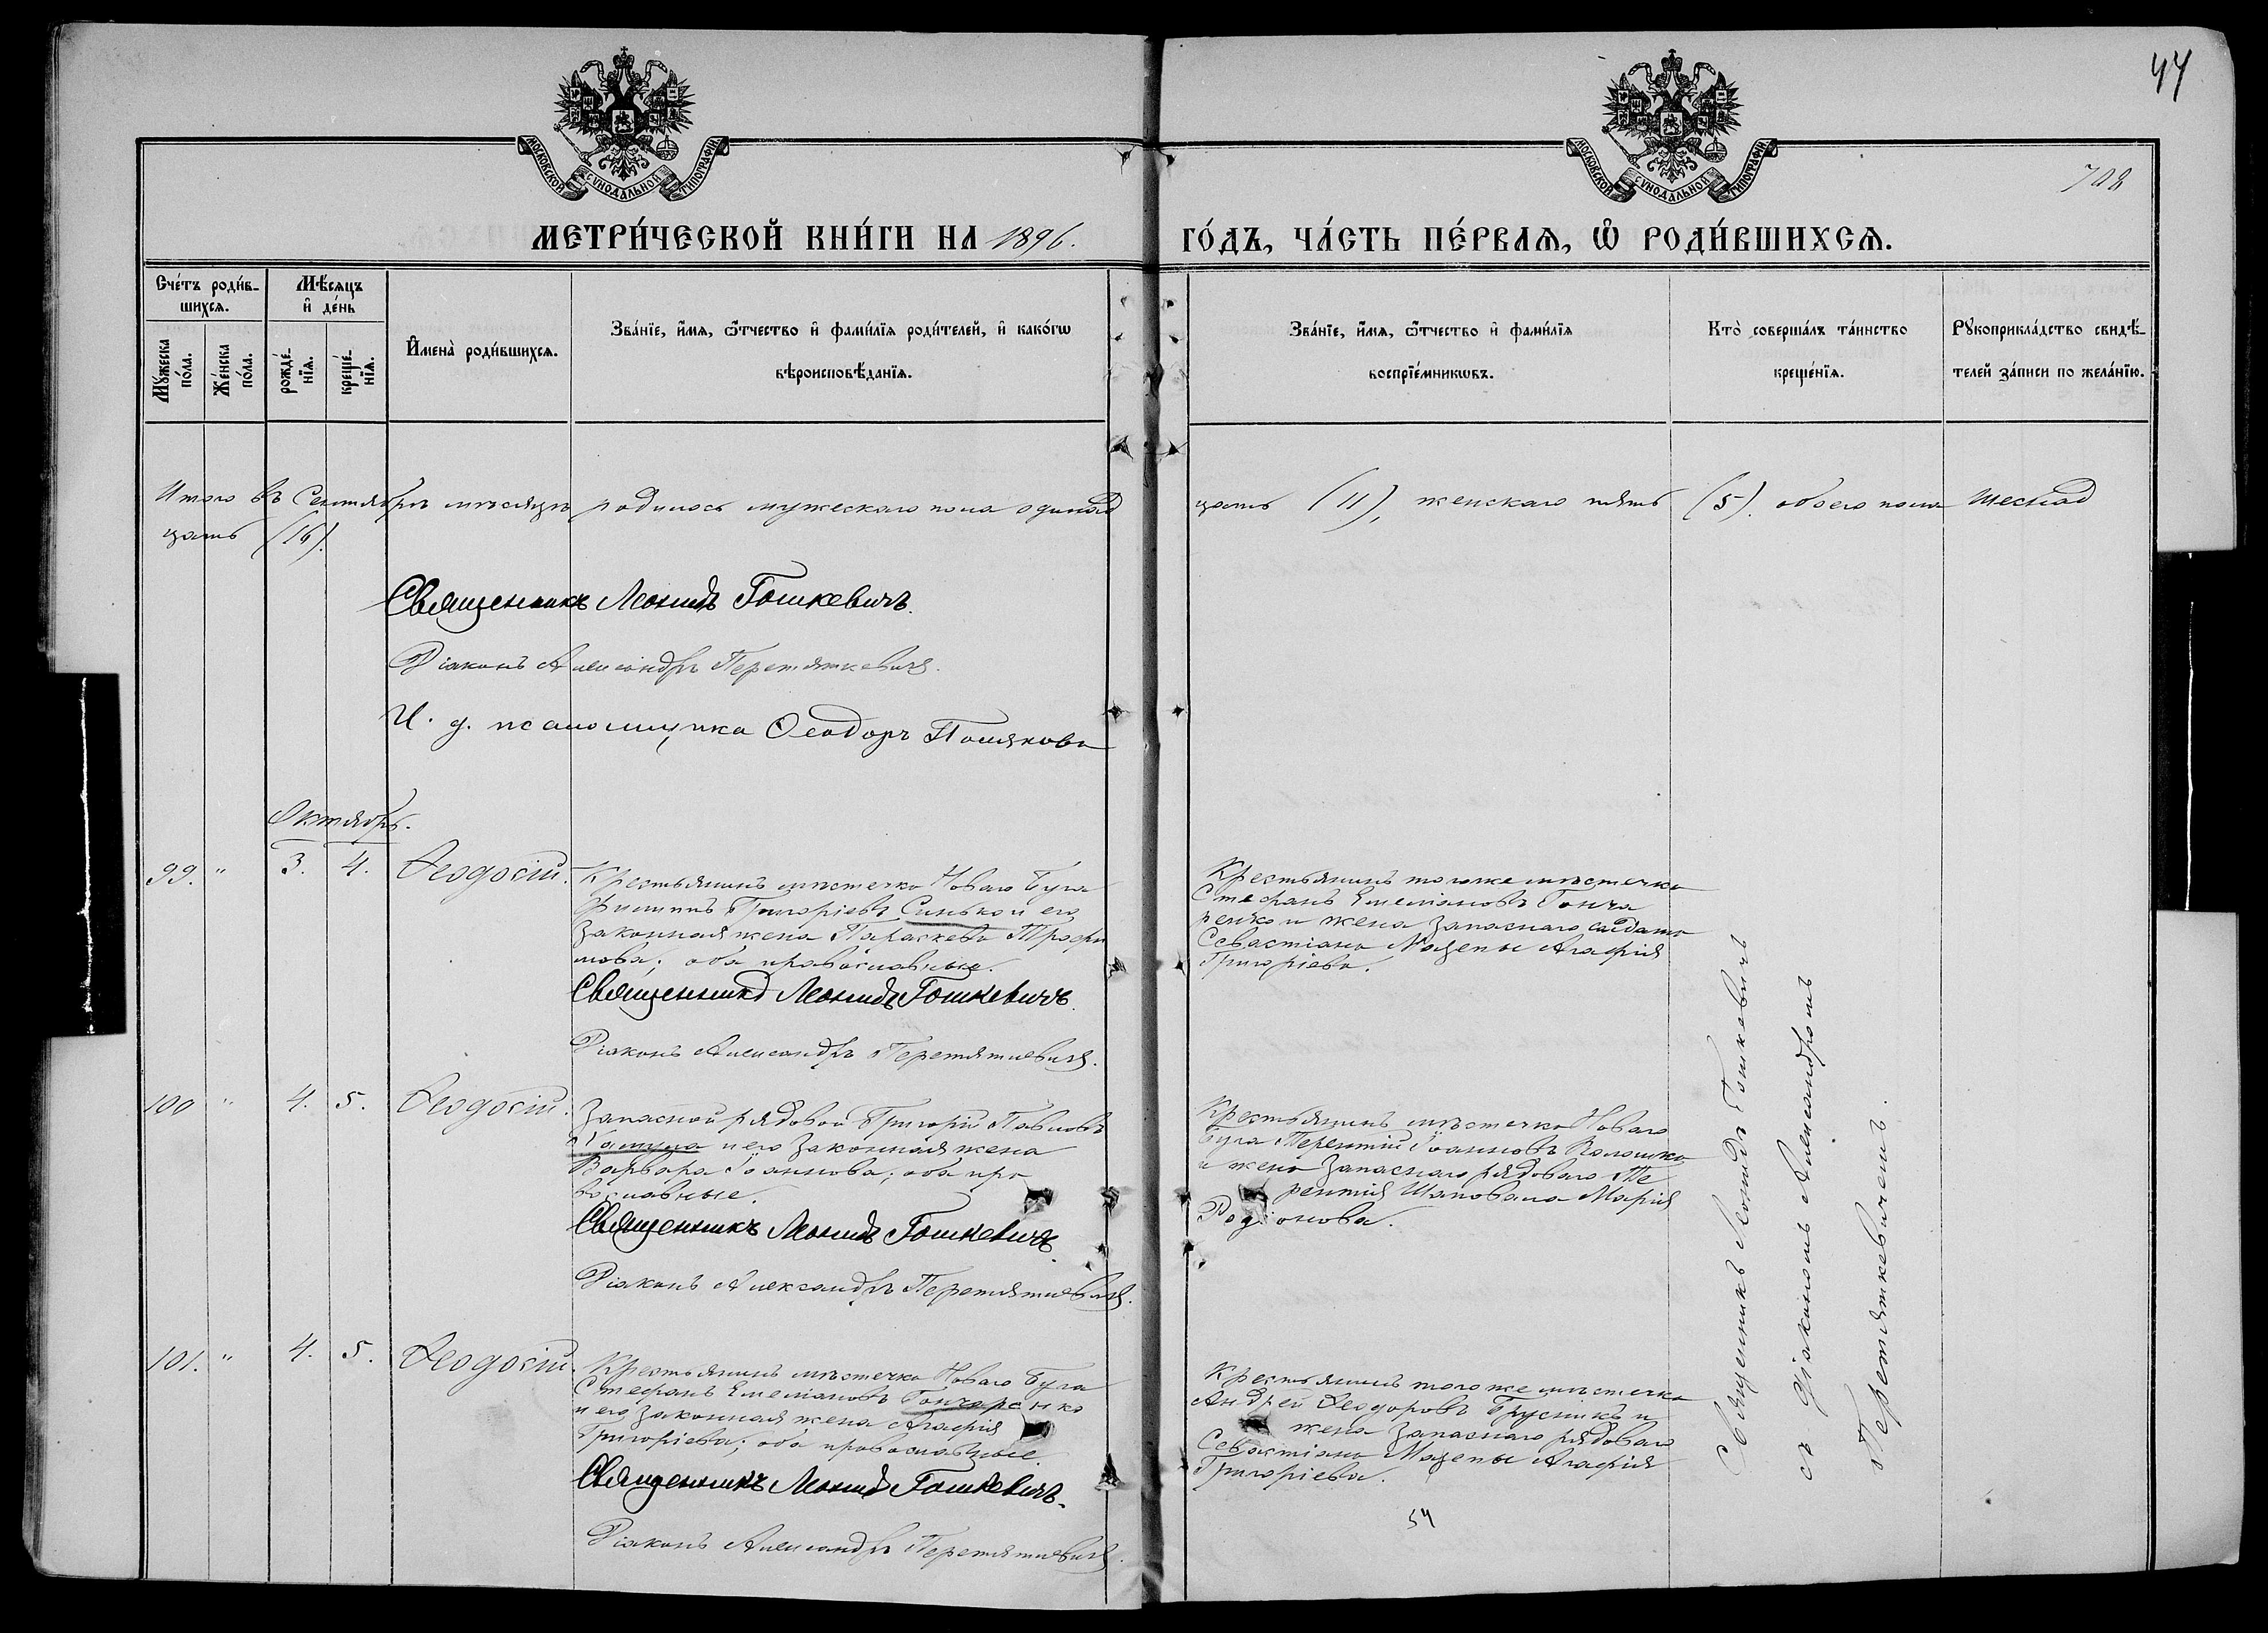 44
708
МОСКОВСКОЙ СѴНОДАЛЬНОЙ ТИПОГРАФІИ
МОСКОВСКОЙ СѴНОДАЛЬНОЙ ТИПОГРАФІИ
МЕТРИ́ЧЕСКОЙ КНИ́ГИ НА 1896. ГО́ДЪ, ЧА́СТЬ ПЕ́РВАѦ, Ѽ РОДИ́ВШИХСѦ.
Сче́тъ роди́в-
шихсѧ.
Мѣ́сяцъ
и҆ де́нь
Мꙋ́жеска
по́ла.
Же́нска
по́ла.
рожде́-
нїѧ.
креще́-
нїѧ.
И҆мена̀ роди́вшихсѧ.
Зва́нїе, и҆́мѧ, ѻ҆́тчество и҆ фами́лїѧ роди́телей, и҆ како́гѡ
вѣроисповѣ́данїѧ.
Зва́нїе, и҆́мѧ, ѻ҆́тчество и҆ фами́лїѧ
воспрїе́мникѡвъ.
Кто̀ соверша́лъ та́инство
креще́нїѧ.
Рꙋкоприкла́дство свидѣ́-
телей за́писи по жела́нїю.
Итого въ Сентябрѣ мѣсяцѣ родилось мужескаго пола одинад
цать (11), женскаго пять (5). обоего пола шеснад
цать (16).
Священникъ Леонидъ Гошкевичъ.
Діаконъ Александръ Перетяткевичъ.
И. д. псаломщика Ѳеодоръ Поляковъ
Октябрь.
99. " 3. 4. Ѳеодосій.
Крестьянинъ мѣстечка Новаго Буга
Филиппъ Григоріевъ Синько и его
законная жена Параскева Трофи
мова; оба православные.
Священникъ Леонидъ Гошкевичъ.
Діаконъ Александръ Перетяткевичъ.
Крестьянинъ тогоже мѣстечка
Стефанъ Емеліановъ Гонча
ренко и жена запаснаго солдата
Севастіана Мацепы Агафія
Григоріева.
100 " 4. 5. Ѳеодосій.
Запасной рядовой Григорій Павловъ
и его законная жена
Варвара Іоаннова; оба пра
вославные.
Священникъ Леонидъ Гошкевичъ.
Діаконъ Александръ Перетяткевичъ.
Крестьянинъ мѣстечка Новаго
Буга Терентій Іоанновъ Волошко
и жена запаснаго рядоваго Те
рентія Шаповала Марія
Родіонова.
101. " 4. 5. Ѳеодосій.
Крестьянинъ мѣстечка Новаго Буга
Стефанъ Емеліановъ Гончаренко
и его законная жена Агафія
Григоріева; оба православные.
Священникъ Леонидъ Гошкевичъ.
Діаконъ Александръ Перетяткевичъ.
Крестьянинъ тогоже мѣстечка
Андрей Ѳеодоровъ Брусникъ и
жена запаснаго рядоваго
Севастіана Мацепы Агафія
Григоріева.
Священникъ Леонидъ Гошкевичъ
съ діакономъ Александромъ
Перетяткевичемъ.
54